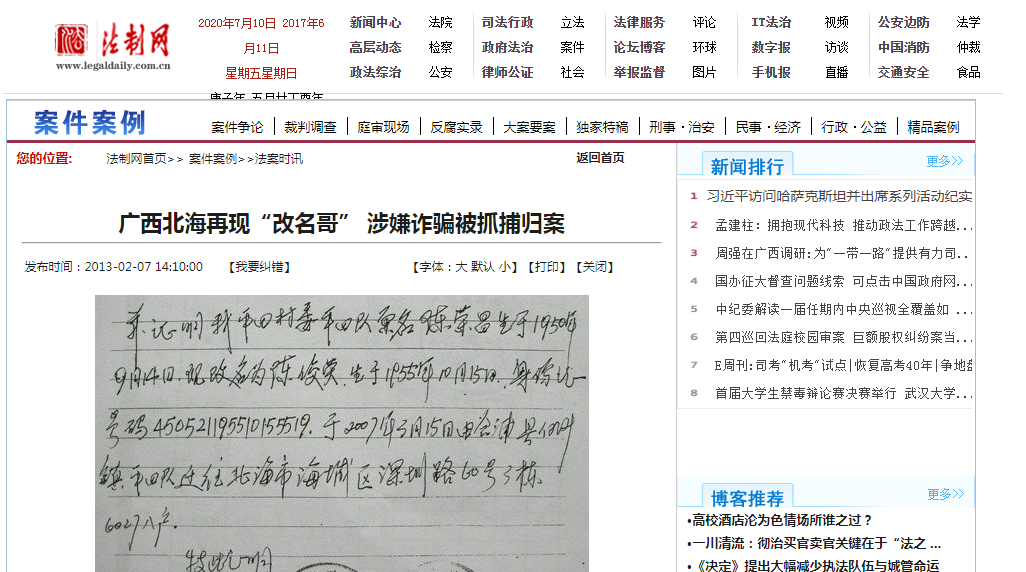 法制网
www.legaldaily.com.cn
2020年7月10日 2017年6
月11日
星期五星期日
庚子年 五月廿丁酉年
新闻中心 法院 司法行政 立法 法律服务 评论 IT法治 视频 公安边防 法学
高层动态 检察 政府法治 案件 论坛博客 环球 数字报 访谈 中国消防 仲裁
政法综治 公安 律师公证 社会 举报监督 图片 手机报 直播 交通安全 食品
案件案例
案件争论 裁判调查 庭审现场 反腐实录 大案要案 独家特稿 刑事·治安 民事·经济 行政·公益 精品案例
您的位置: 法制网首页>> 案件案例>>法案时讯 返回首页
广西北海再现“改名哥” 涉嫌诈骗被抓捕归案
发布时间：2013-02-07 14:10:00 【我要纠错】 【字体：大 默认 小】【打印】【关闭】
兹证明我平田村委平田队原名陈荣昌生于1950年
9月14日.现改名为陈俊荣.生于1955年10月15日.身份证
号码450521195510155519.于2007年3月15日由合浦县
镇平田队迁往北海市海城区深圳路60号3栋
特此证明
新闻排行 更多>>
1 习近平访问哈萨克斯坦并出席系列活动纪实
2 孟建柱：拥抱现代科技 推动政法工作跨越...
3 周强在广西调研:为“一带一路”提供有力司...
4 国办征大督查问题线索 可点击中国政府网...
5 中纪委解读一届任期内中央巡视全覆盖如 ...
6 第四巡回法庭校园审案 巨额股权纠纷案当...
7 E周刊:司考“机考”试点|恢复高考40年|争地盘
8 首届大学生禁毒辩论赛决赛举行 武汉大学...
博客推荐 更多>>
•高校酒店沦为色情场所谁之过？
•一川清流：彻治买官卖官关键在于“法之 ...
•《决定》提出大幅减少执法队伍与城管命运